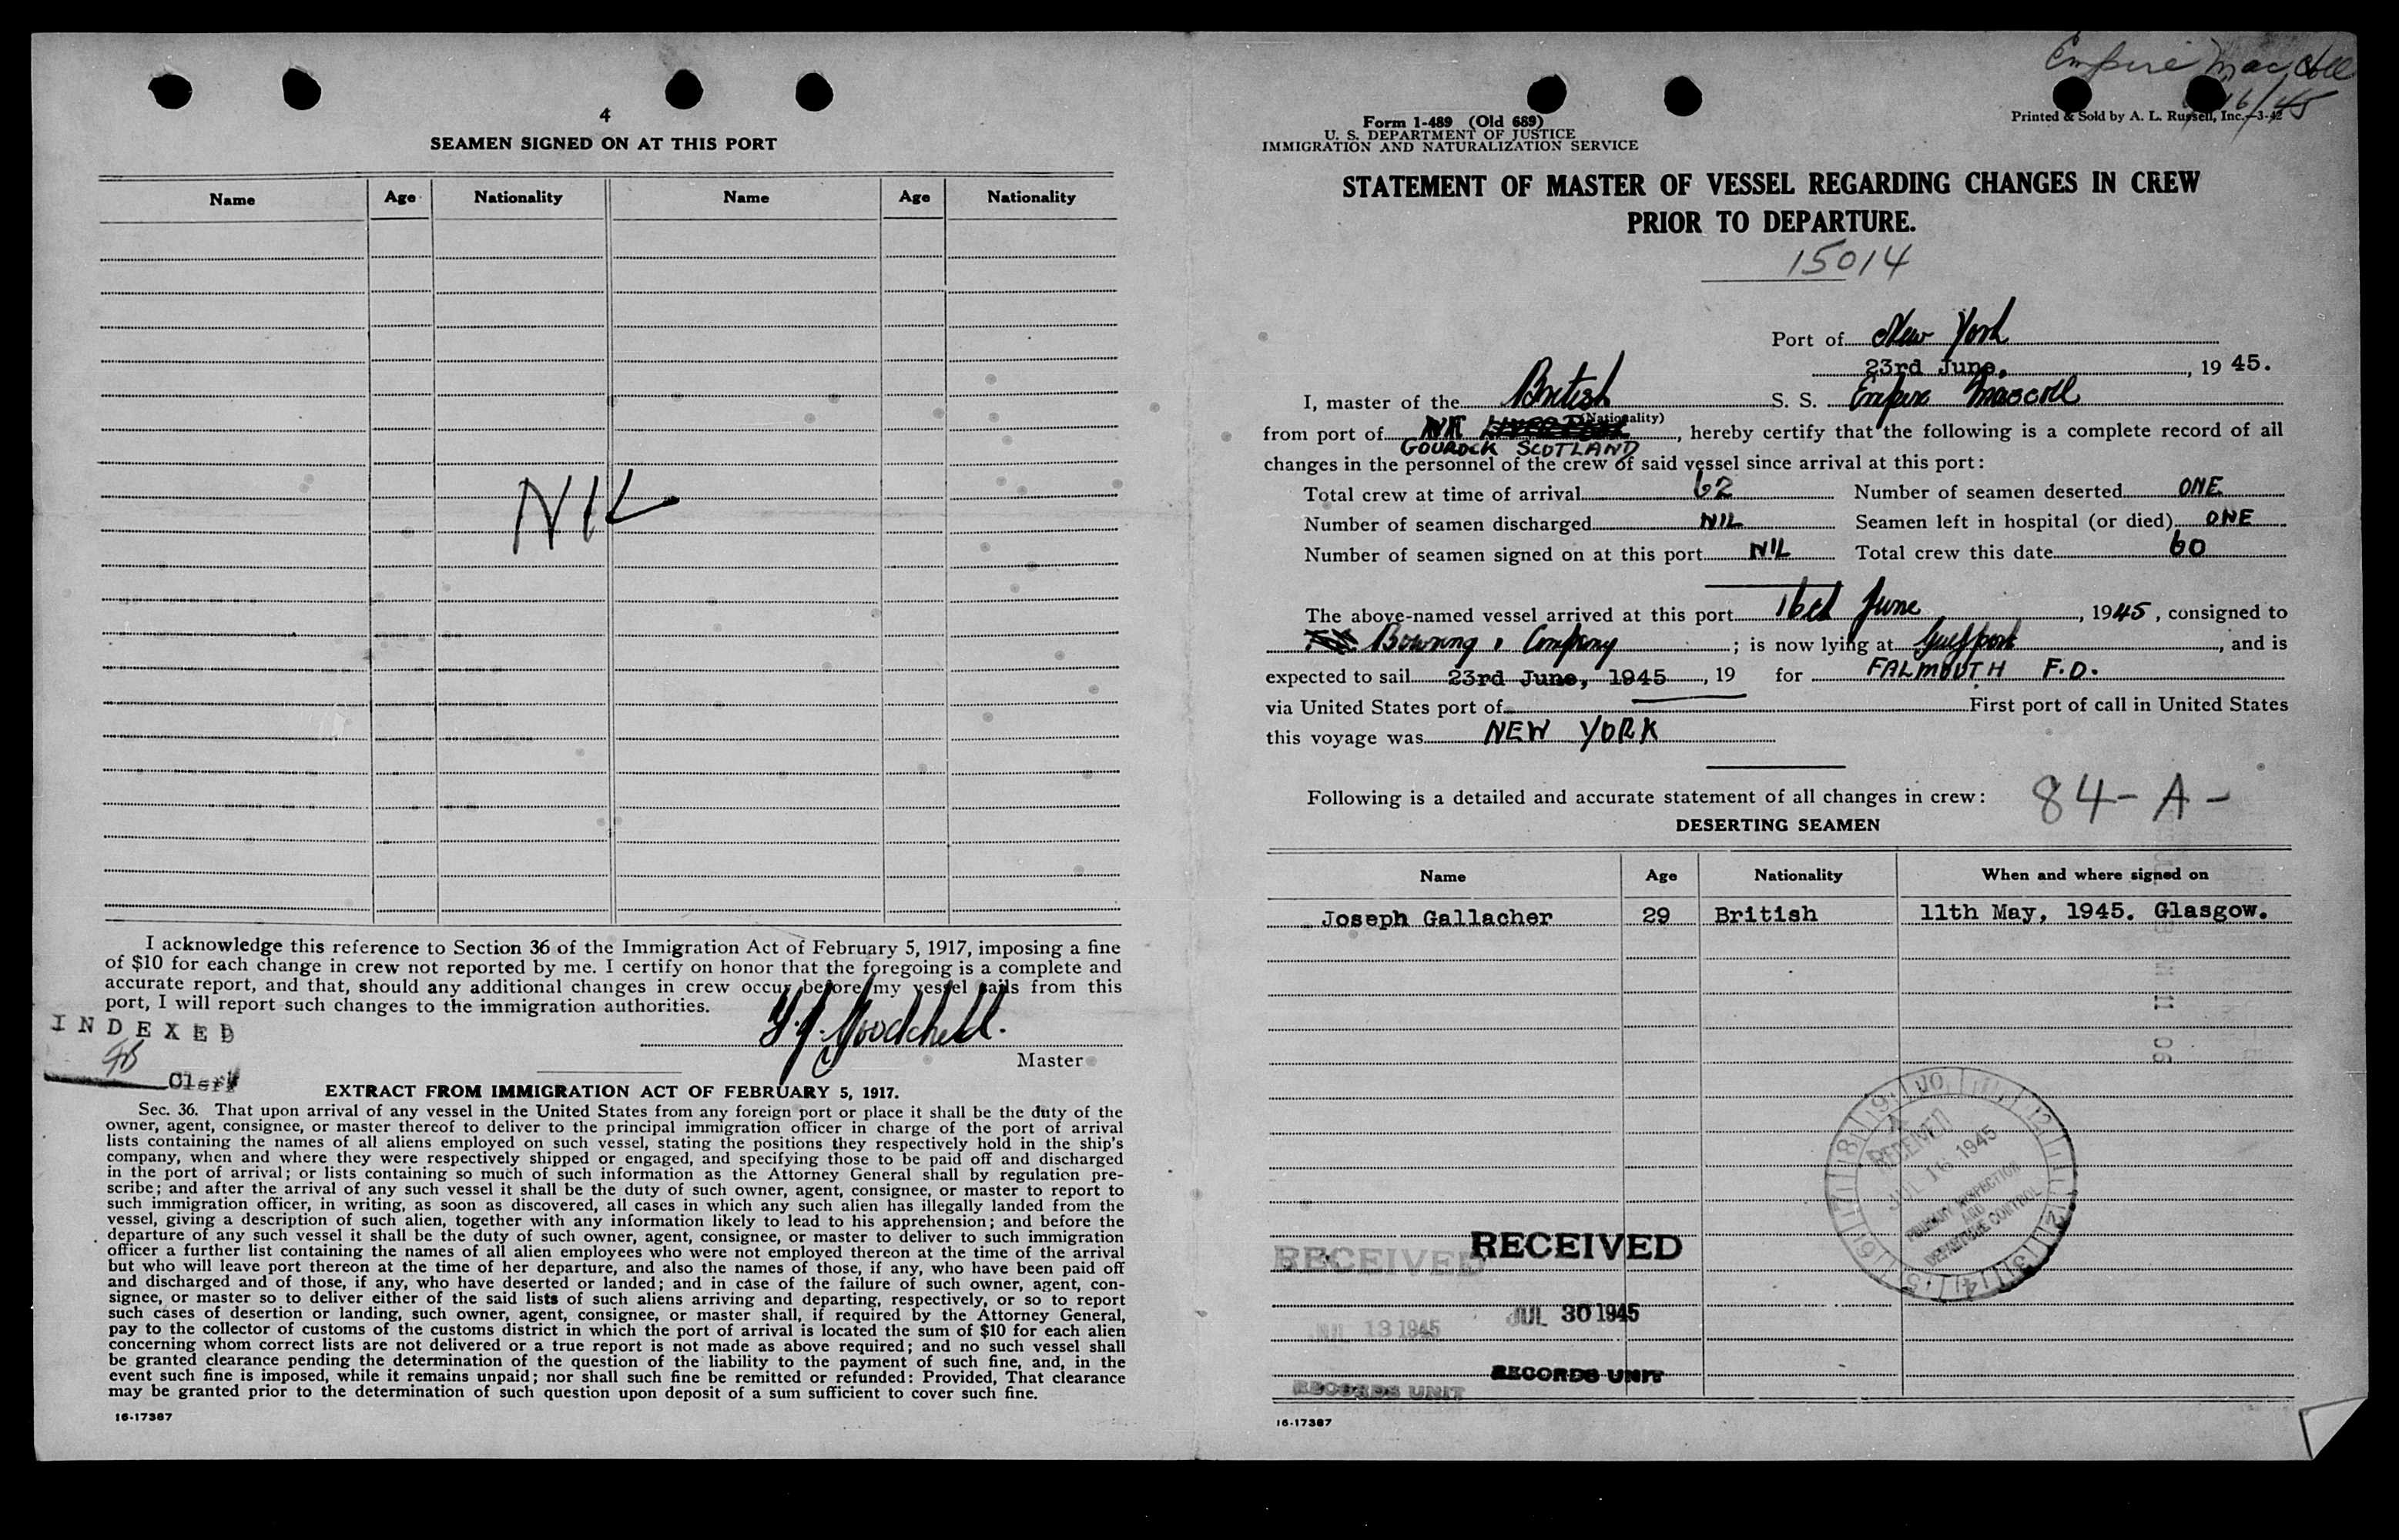 4
SEAMEN SIGNED ON AT THIS PORT
Name Age Nationality Name Age Nationality
NIL
I acknowledge this reference to Section 36 of the Immigration Act of February 5, 1917, imposing a fine
of $10 for each change in crew not reported by me. I certify on honor that the foregoing is a complete and
accurate report, and that, should any additional changes in crew occur before my vessel sails from this
port, I will report such changes to the immigration authorities.
INDEXED
Master
Clerk
EXTRACT FROM IMMIGRATION ACT OF FEBRUARY 5, 1917.
Sec. 36. That upon arrival of any vessel in the United States from any foreign port or place it shall be the duty of the
owner, agent, consignee, or master thereof to deliver to the principal immigration officer in charge of the port of arrival
lists containing the names of all aliens employed on such vessel, stating the positions they respectively hold in the ship's
company, when and where they were respectively shipped or engaged, and specifying those to be paid off and discharged
in the port of arrival; or lists containing so much of such information as the Attorney General shall by regulation pre-
scribe; and after the arrival of any such vessel it shall be the duty of such owner, agent, consignee, or master to report to
such immigration officer, in writing, as soon as discovered, all cases in which any such alien has illegally landed from the
vessel, giving a description of such alien, together with any information likely to lead to his apprehension; and before the
departure of any such vessel it shall be the duty of such owner, agent, consignee, or master to deliver to such immigration
officer a further list containing the names of all alien employees who were not employed thereon at the time of the arrival
but who will leave port thereon at the time of her departure, and also the names of those, if any, who have been paid off
and discharged and of those, if any, who have deserted or landed; and in case of the failure of such owner, agent, con-
signee, or master so to deliver either of the said lists of such aliens arriving and departing, respectively, or so to report
such cases of desertion or landing, such owner, agent, consignee, or master shall, if required by the Attorney General,
pay to the collector of customs of the customs district in which the port of arrival is located the sum of $10 for each alien
concerning whom correct lists are not delivered or a true report is not made as above required; and no such vessel shall
be granted clearance pending the determination of the question of the liability to the payment of such fine, and, in the
event such fine is imposed, while it remains unpaid; nor shall such fine be remitted or refunded: Provided, That clearance
may be granted prior to the determination of such question upon deposit of a sum sufficient to cover such fine.
16-17387
Empire Maccoll
16/45
Form 1-489 (Old 689)
U. S. DEPARTMENT OF JUSTICE
IMMIGRATION AND NATURALIZATION SERVICE
Printed & Sold by A. L. Russell, Inc.—3-42
STATEMENT OF MASTER OF VESSEL REGARDING CHANGES IN CREW
PRIOR TO DEPARTURE.
15014
Port of New York
23rd June, 19 45.
I, master of the British S. S. Empire Maccoll
(Nationality)
from port of GOUROCK SCOTLAND, hereby certify that the following is a complete record of all
changes in the personnel of the crew of said vessel since arrival at this port:
Total crew at time of arrival 62 Number of seamen deserted ONE
Number of seamen discharged NIL Seamen left in hospital (or died) ONE
Number of seamen signed on at this port NIL Total crew this date 60
The above-named vessel arrived at this port 16th June, 1945, consigned to
Bowring & Company; is now lying at Gulfport, and is
expected to sail 23rd June, 1945, 19 for FALMOUTH F.O.
via United States port of First port of call in United States
this voyage was NEW YORK
Following is a detailed and accurate statement of all changes in crew: 84-A-
DESERTING SEAMEN
Name Age Nationality When and where signed on
Joseph Gallacher 29 British 11th May, 1945. Glasgow.
RECEIVED
JUL 16 1945
PRIMARY INSPECTION
AND
DEPARTURE CONTROL
RECEIVED RECEIVED
JUL 13 1945 JUL 30 1945
RECORDS UNIT RECORDS UNIT
16-17387